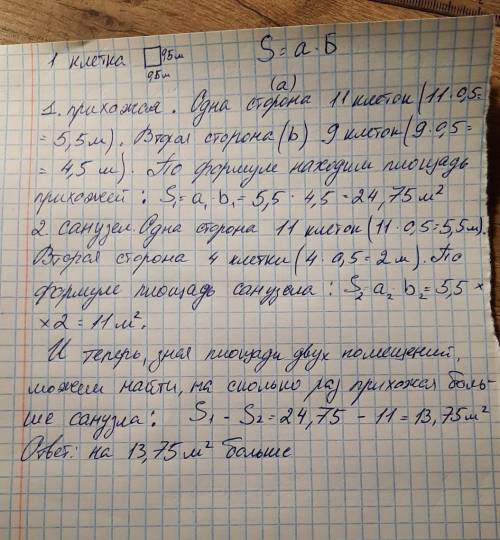 1 клетка 0,5м S = a · Б
0,5м
(a)
1. прихожая. Одна сторона 11 клеток (11 · 0,5 =
= 5,5 м). Вторая сторона (b) 9 клеток (9 · 0,5 =
= 4,5 м). По формуле находим площадь
прихожей: S₁ = a₁ · b₁ = 5,5 · 4,5 = 24,75 м²
2. санузел. Одна сторона 11 клеток (11 · 0,5 = 5,5 м).
Вторая сторона 4 клетки (4 · 0,5 = 2 м). По
формуле площадь санузела: S₂ = a₂ · b₂ = 5,5 ×
× 2 = 11 м².
И теперь, зная площади двух помещений,
можем найти, на сколько раз прихожая боль-
ше санузла: S₁ - S₂ = 24,75 - 11 = 13,75 м²
Ответ: на 13,75 м² больше